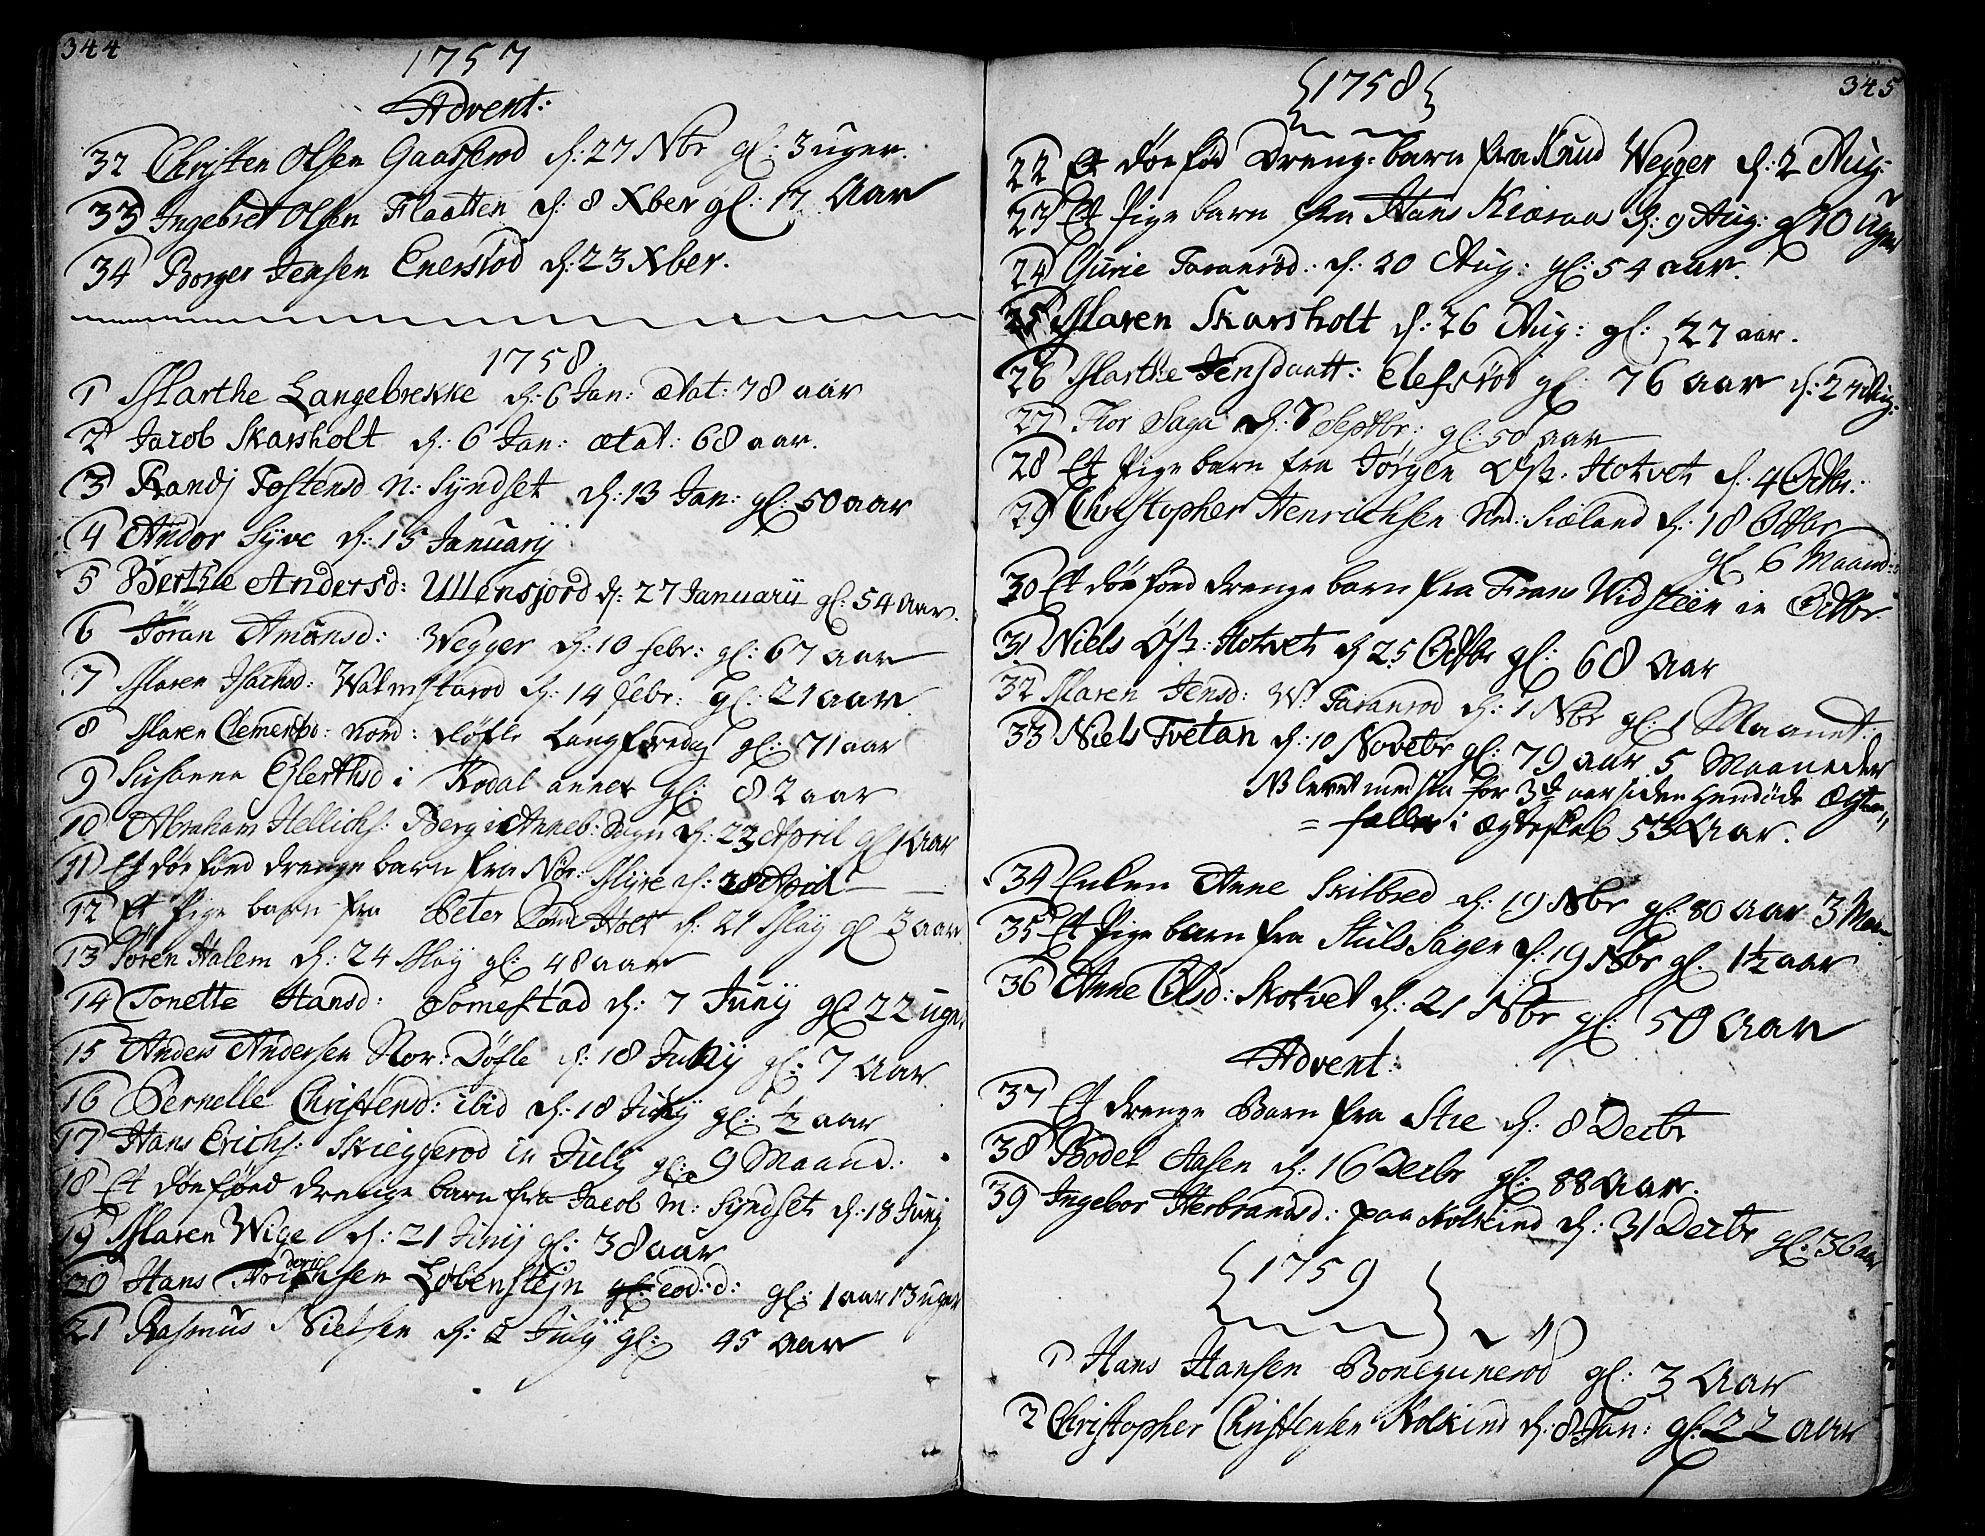 344
1757
Advent:
32 Christen Olsen Gaaserød d: 27 Nbr gl: 3 uger.
33 Ingebret Olsen Flaatten d: 8 Xber gl: 17 Aar
34 Borger Jensen Enersrod d: 23 Xber.
1758.
1 Marthe Langebrekke d: 6 Jan: ætat: 78 aar
2 Jacob Skarsholt d: 6 Jan: ætat: 68 aar.
3 Randj Tostensd N: Syndset d: 13 Jan: gl: 50 aar
4 Andor Syve d: 15 Januarij
5 Berthe Andersd: Ullensjord d: 27 Januarii gl: 54 Aar.
6 Jöran Amunsd: Wegger d: 10 febr: gl: 67 aar
7 Maren Isachsd: Walmestarod d: 14 febr: gl: 21 aar.
8 Maren Clementsd: nord: Døfle Langfredag gl: 71 aar
9 Susanna Ellertsd i Kodal annex gl: 82 aar
10 Abraham Hellichs: Berg i Anneb: Sogn d: 23 April gl 1 Aar
11 Et dødfoed drenge barn fra Nór: Myre d: 28 April
12 Et Pige barn fra Peter Holt d: 21 May gl 3 aar.
13 Søren Halem d: 24 May gl: 48 aar
14 Tonette Hansd: Somestad d: 7 Junij gl: 22 uger
15 Anders Andersen Nor: Døfle d: 18 Junij gl: 7 Aar.
16 Pernelle Christensd: ibid d: 18 Junij gl: ½ aar
17 Hans Erichs: Skieggerod in July gl: 9 Maand:
18 Et dødføed drenge barn fra Jacob M: Syndset d: 18 Junij
19 Maren Wige d: 21 Junij gl: 38 aar
20 Hans Friderichsen Løbenstejn eod: d: gl: 1 aar 13 uger
21 Rasmus Nielsen d: 2 Julij gl: 45 Aar
345
1758
22 Et dødfød Dreng-barn fra Knud Wegger d: 2 Aug:
23 Et Pige barn fra Hans Kiæraas d: 9 Aug: gl 10 Uger
24 Gurie Faranrød: d: 20 Aug: gl: 54 aar.
25 Maren Skarsholt d: 26 Aug: gl: 27 aar.
26 Marthe Jensdaatt: Elefsrød gl: 76 aar d: 27 Aug:
27 Thor Saga d: 8 Septbr: gl: 50 aar
28 Et Pige barn fra Jørgen Øst: Hotvet d: 4 Octbr:
29 Christopher Henrichsen Nrd: Siæland d: 18 Octbr
gl 6 Maand:
30 Et død foed drenge barn fra Frans Widsteen in Octbr.
31 Niels Øst: Hotvet d 25 Octbr gl: 68 Aar
32 Maren Jensd: W: Faranrod d: 1 Nbr gl: 1 Maanet:
33 Niels Tvetan d: 10 Novebr gl: 79 aar 5 Maaneder
NB levet med sin for 3de aar siden hendøde Ægte-
= fælle i Ægteskab 53 Aar.
34 Enken Anne Skilbred d: 19 Nbr gl: 80 aar 3 Maan
35 Et Pige barn fra Sagen d: 19 Nbr gl. 1½ aar
36 Anne Olsd: Skotvet d: 21 Nbr gl: 50 aar
Advent:
37 Et drenge Barn fra Stie d: 8 Decbr
38 Bodel Aasen d: 16 Decbr gl: 88 Aar.
39 Ingebor Herbrandsd: paa Kolkind d: 31 Decbr gl: 36 aar
1759
1 Hans Hansen Bonegunerød gl: 3 Aar
2 Christopher Christensen Kolkind d: 8 Jan: gl: 22 aar